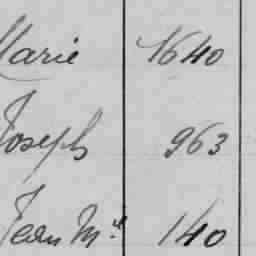 Marie 1640
Joseph 963
Jean M.d 140